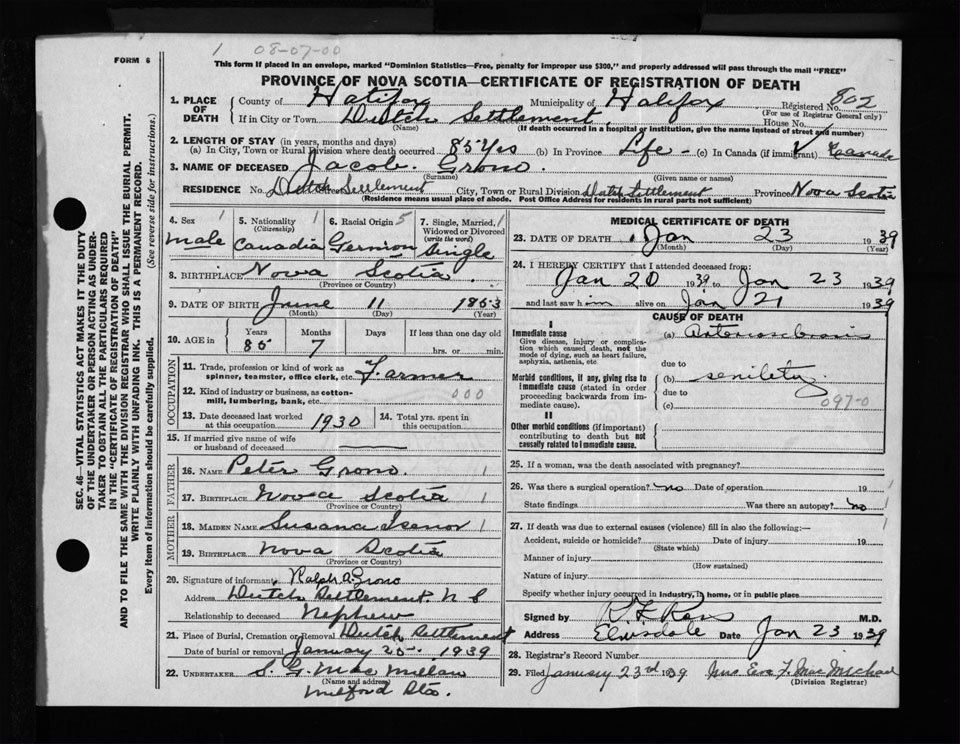 1 08-07-00
FORM 6
This form if placed in an envelope, marked "Dominion Statistics—Free, penalty for improper use $300," and properly addressed will pass through the mail "FREE"
PROVINCE OF NOVA SCOTIA—CERTIFICATE OF REGISTRATION OF DEATH
1. PLACE OF DEATH County of Halifax Municipality of Halifax Registered No. 802
(For use of Registrar General only)
If in City or Town Dutch Settlement House No.
(Name) (If death occurred in a hospital or institution, give the name instead of street and number)
2. LENGTH OF STAY (in years, months and days)
(a) In City, Town or Rural Division where death occurred 85 Yrs (b) In Province Life - (c) In Canada (if immigrant) Canada
3. NAME OF DECEASED Jacob Grono
(Surname) (Given name or names)
RESIDENCE No. Dutch Settlement City, Town or Rural Division Dutch Settlement Province Nova Scotia
(Residence means usual place of abode. Post Office Address for residents in rural parts not sufficient)
4. Sex 1 male
5. Nationality 1 (Citizenship) Canadia
6. Racial Origin 5 German
7. Single, Married, 1 Widowed or Divorced (write the word) Single
8. BIRTHPLACE Nova Scotia
(Province or Country)
9. DATE OF BIRTH June 11 1853
(Month) (Day) (Year)
10. AGE in Years Months Days If less than one day old
85 7 hrs. or min.
OCCUPATION
11. Trade, profession or kind of work as spinner, teamster, office clerk, etc. Farmer
12. Kind of industry or business, as cotton-mill, lumbering, bank, etc. 000
13. Date deceased last worked at this occupation 1930
14. Total yrs. spent in this occupation
15. If married give name of wife or husband of deceased
FATHER
16. NAME Peter Grono 1
17. BIRTHPLACE Nova Scotia 1
(Province or Country)
MOTHER
18. MAIDEN NAME Susana Isenor 1
19. BIRTHPLACE Nova Scotia
(Province or Country)
20. Signature of informant Ralph A. Grono
Address Dutch Settlement N S
Relationship to deceased Nephew
21. Place of Burial, Cremation or Removal Dutch Settlement
Date of burial or removal January 25 1939
22. UNDERTAKER S. G. MacMillan
(Name and address)
Milford Sta.
MEDICAL CERTIFICATE OF DEATH
23. DATE OF DEATH Jan 23 1939
(Month) (Day) (Year)
24. I HEREBY CERTIFY that I attended deceased from:
Jan 20 1939 to Jan 23 1939
and last saw him alive on Jan 21 1939
CAUSE OF DEATH
I
Immediate cause
Give disease, injury or complication which caused death, not the mode of dying, such as heart failure, asphyxia, asthenia, etc.
(a) Arteriosclerosis
due to
Morbid conditions, if any, giving rise to immediate cause (stated in order proceeding backwards from immediate cause).
(b) senility
due to
(c) 097-0
II
Other morbid conditions (if important) contributing to death but not causally related to immediate cause.
25. If a woman, was the death associated with pregnancy?
26. Was there a surgical operation? no Date of operation 19
State findings Was there an autopsy? no
27. If death was due to external causes (violence) fill in also the following:—
Accident, suicide or homicide? Date of injury 19
(State which)
Manner of injury
(How sustained)
Nature of injury
Specify whether injury occurred in industry, in home, or in public place
Signed by M.D.
Address Elmsdale Date Jan 23 1939
28. Registrar's Record Number
29. Filed January 23rd 1939 Mrs Eva F. MacMichael
(Division Registrar)
SEC. 46—VITAL STATISTICS ACT MAKES IT THE DUTY
OF THE UNDERTAKER OR PERSON ACTING AS UNDERTAKER TO OBTAIN ALL THE PARTICULARS REQUIRED
IN THE "CERTIFICATE OF REGISTRATION OF DEATH"
AND TO FILE THE SAME WITH THE DIVISION REGISTRAR WHO SHALL ISSUE THE BURIAL PERMIT.
WRITE PLAINLY WITH UNFADING INK. THIS IS A PERMANENT RECORD.
Every item of information should be carefully supplied. (See reverse side for instructions.)